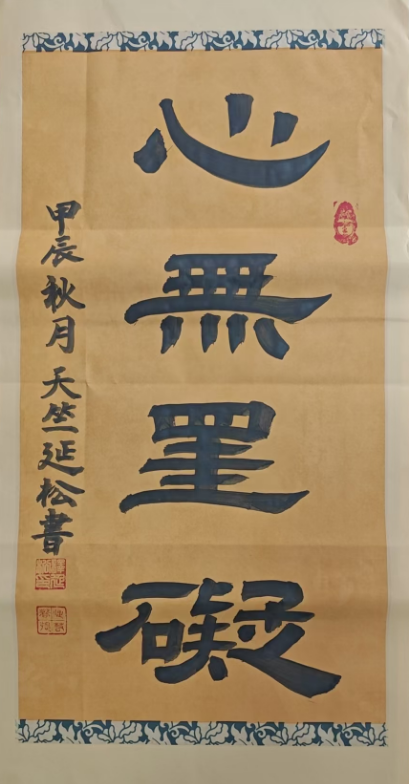 心無罣礙
甲辰秋月天竺延松書